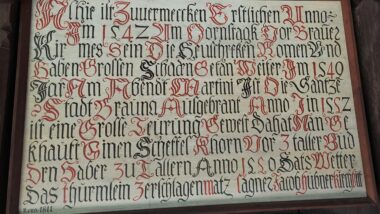 Alhie ist Zuvermercken Erstlichen Anno
Im 1542 Am Dornstagk Vor Brauer
Kirmes Sein Die Heuschrecken Komen Vnd
Haben Grossen Schaden Getan Weiter Im 1549
Jar Am Abendt Martini Ist Die Gantze
Stadt Brauna Ausgebrant Anno Im 1552
ist eine Grosse Teurung Gewest Da hat Man Ge
khauft Einen Scheffel Khorn Vor Taller Vnd
Den Saber Zu Tallern Anno Das Wetter
Das thurmlein Zerschlagen matz Jacob hubner
Reno. 1811